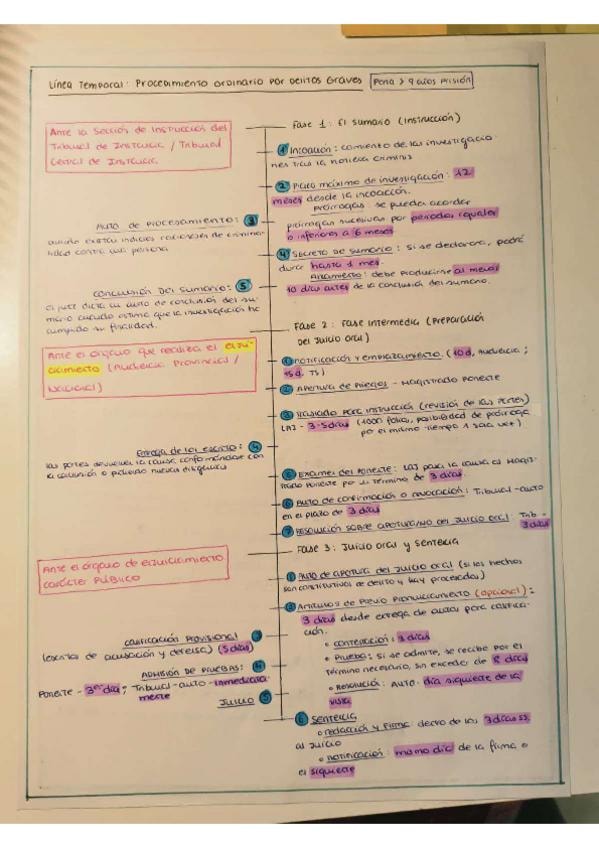 Línea Temporal: Procedimiento Ordinario por Delitos Graves
Pena > 9 años Prisión
Fase 1: El sumario (Instrucción)
Ante la Sección de Instrucción del
Tribunal de Instancia / Tribunal
Central de Instancia.
1 Incoación: comienzo de las investigacio
nes tras la noticia criminis
2 Plazo máximo de investigación: 12
meses desde la incoación.
Prórrogas: se puedes acordar
prórrogas sucesivas por periodos iguales
o inferiores a 6 meses
Auto de Procesamiento: 3
cuando existan indicios racionales de crimina-
lidad contra una persona
4 Secreto de sumario: si se declarara, podrá
durar hasta 1 mes.
Alzamiento: debe producirse al menos
10 días antes de la conclusión del sumario.
Conclusión Del Sumario: 5
el juez dicta un auto de conclusión del su-
mario cuando estima que la investigación ha
cumplido su finalidad.
Fase 2: Fase Intermedia (Preparación
del Juicio Oral)
Ante el órgano que realiza el enjui-
ciamiento (Audiencia Provincial /
Nacional)
1 Notificación y emplazamiento. (10d, Audiencia;
15d. TS)
2 Apertura de Pliegos - Magistrado Ponente
3 Traslado para instrucción (revisión de las partes)
LAJ - 3-5 días (1000 folios, posibilidad de prórroga
por el mismo tiempo 1 sola vez)
Entrega de los escritos: 4
las partes devuelven la causa, conformándose con
la conclusión o pidiendo nuevas diligencias
5 Examen del Ponente: LAJ pasa la causa al Magis-
trado Ponente por un término de 3 días.
6 Auto de confirmación o revocación: Tribunal - auto
en el plazo de 3 días
7 Resolución sobre apertura/no del Juicio oral: Trib -
3 días
Fase 3: Juicio Oral y Sentencia
Ante el órgano de enjuiciamiento
carácter Público
1 Auto de apertura del Juicio Oral (si los hechos
son constitutivos de delito y hay procesados)
2 Artículos de Previo Pronunciamiento (opcional):
3 días desde entrega de autos para califica-
ción.
• contestación: 3 días
• Prueba: si se admite, se recibe por el
término necesario, sin exceder de 8 días
• Resolución: Auto. día siguiente de la
vista
Calificación Provisional 3
(escritos de acusación y defensa) (5 días)
Admisión de Pruebas: 4
Ponente - 3er día; Tribunal - auto - inmediata
mente
Juicio 5
6 Sentencia
o redacción y Firma: dentro de los 3 días ss.
al Juicio
o notificación: mismo día de la firma o
el siguiente